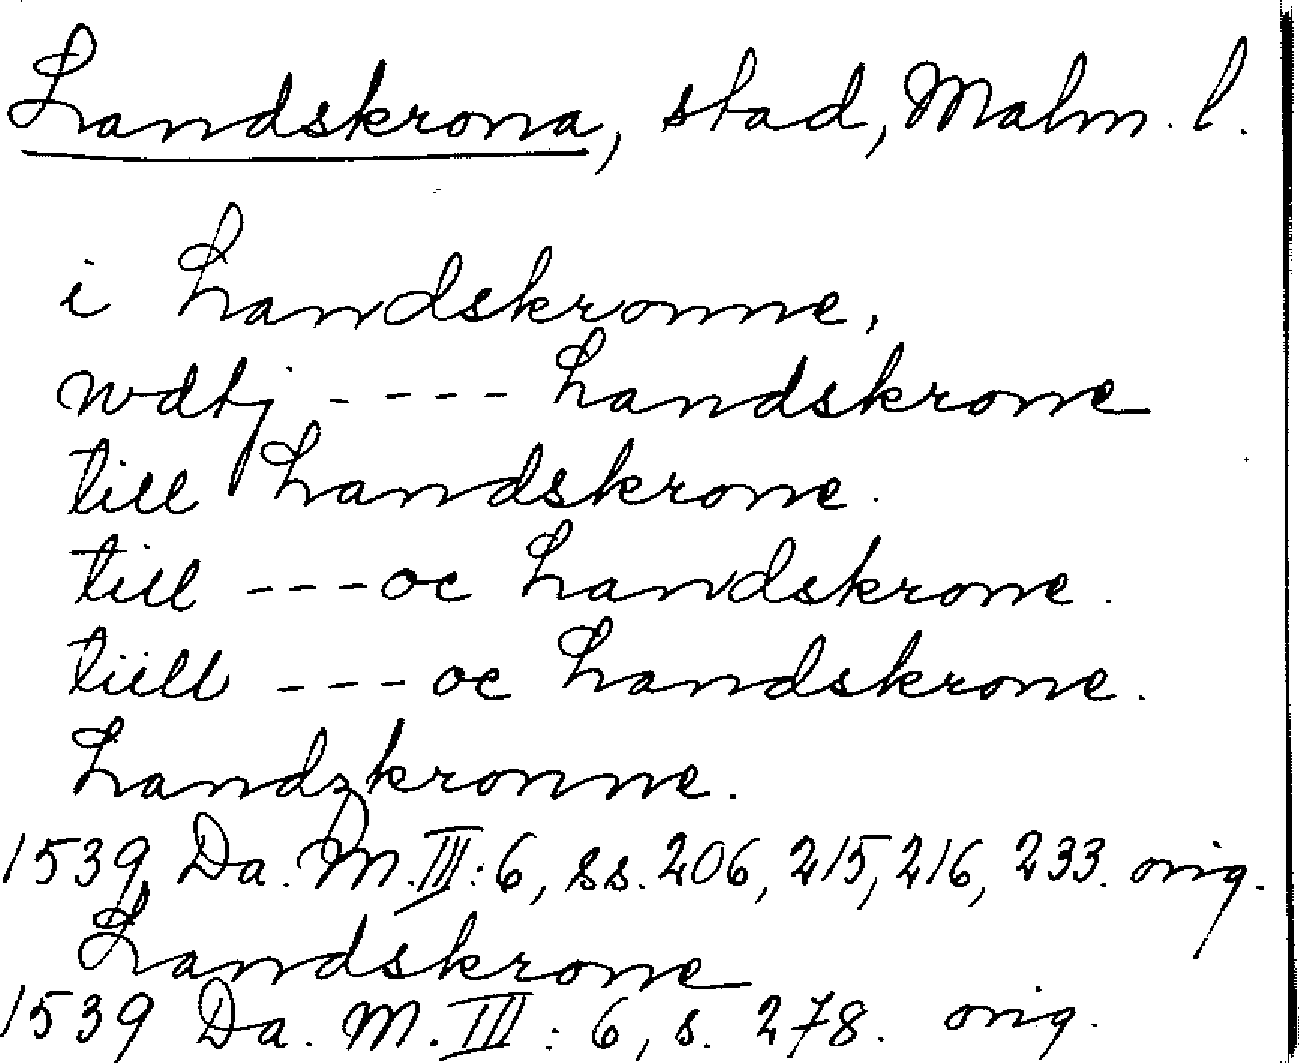 Landskrona, stad, Malm. l.
i Landskronne,
wdtj - - - - Landskrone
till Landskrone.
till - - - oc Landskrone.
tiill - - - oc Landskrone.
Landzkronne.
1539 Da. M. III: 6, ss. 206, 215, 216, 233. orig.
Landskrone
1539 Da. M. III: 6, s. 278. orig.